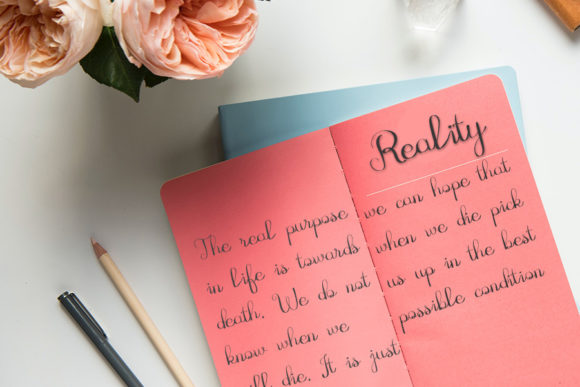 The real purpose
in life is towards
death. We do not
know when we
die. It is just
Reality
we can hope that
when we die pick
us up in the best
possible condition